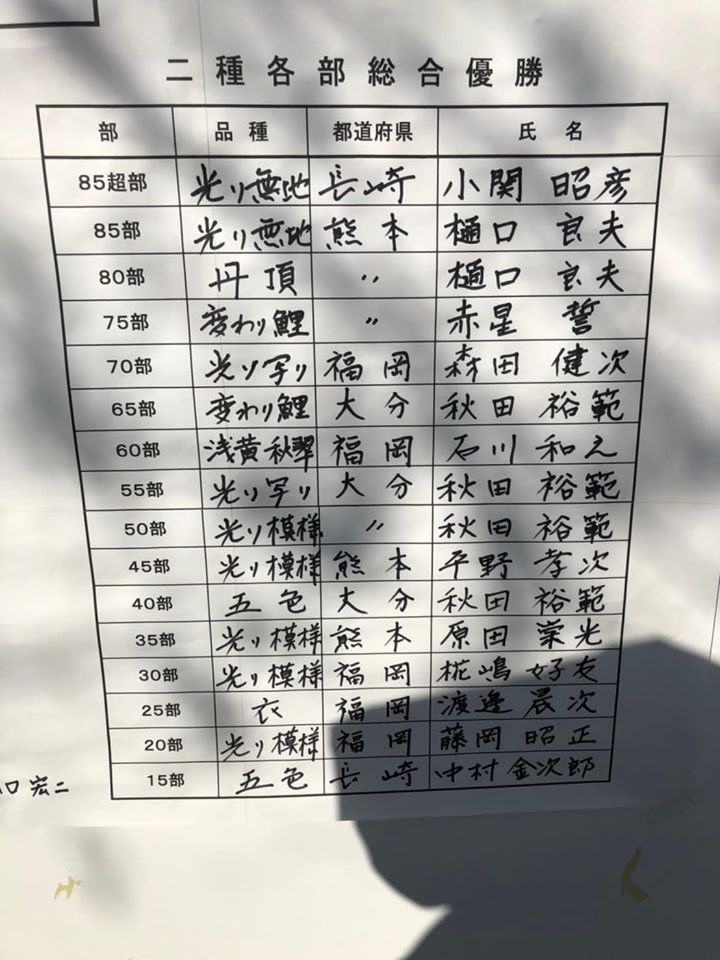 二種各部総合優勝
部 品種 都道府県 氏名
85超部 光リ無地 長崎 小関 昭彦
85部 光リ無地 熊本 樋口 良夫
80部 丹頂 〃 樋口 良夫
75部 変わり鯉 〃 赤星 誓
70部 光リ写リ 福岡 森田 健次
65部 変わり鯉 大分 秋田 裕範
60部 浅黄秋翠 福岡 石川 和之
55部 光リ写リ 大分 秋田 裕範
50部 光リ模様 〃 秋田 裕範
45部 光リ模様 熊本 平野 孝次
40部 五色 大分 秋田 裕範
35部 光リ模様 熊本 原田 崇光
30部 光リ模様 福岡 椛嶋 好友
25部 衣 福岡 渡邊 晨次
20部 光リ模様 福岡 藤岡 昭正
15部 五色 長崎 中村 金次郎
口 宏二